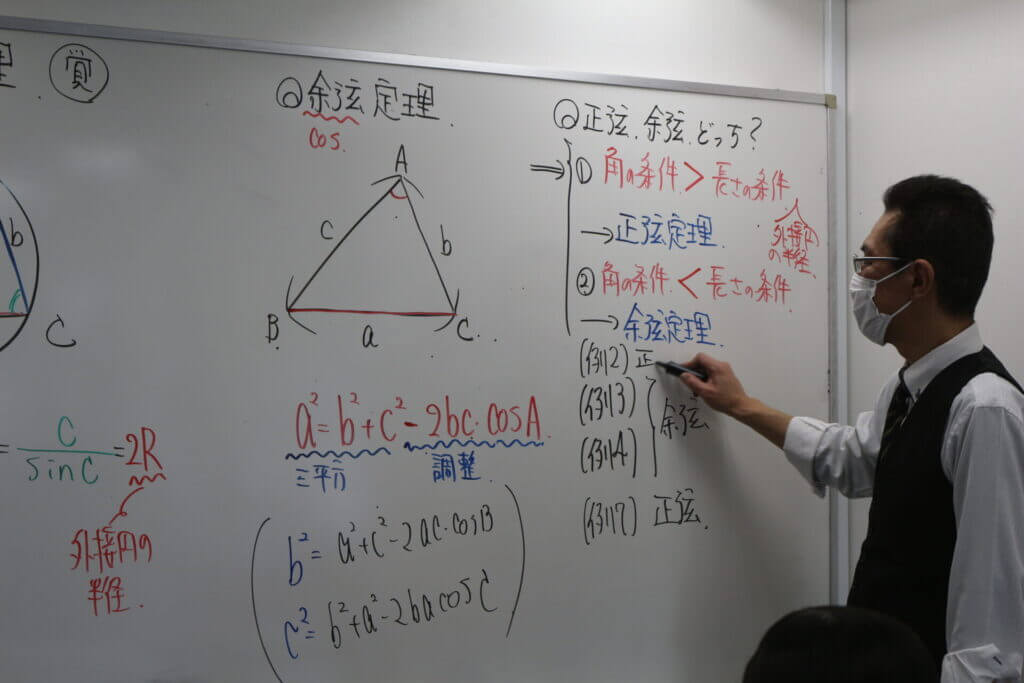 理 賞
b
C
= c/sinC = 2R
外接円の
半径.
余弦定理.
cos.
A
c
b
B
a
C.
a²=b²+c²-2bc·cosA
三平方
調整.
b²= a²+c²-2ac·cosB
c²= b²+a²-2bacosC
正弦.余弦.どっち?
⇒ ① 角の条件 > 長さの条件
外接円
の半径.
→正弦定理.
② 角の条件 < 長さの条件
→余弦定理.
(例2) 正
(例3)
余弦
(例4)
(例7) 正弦.